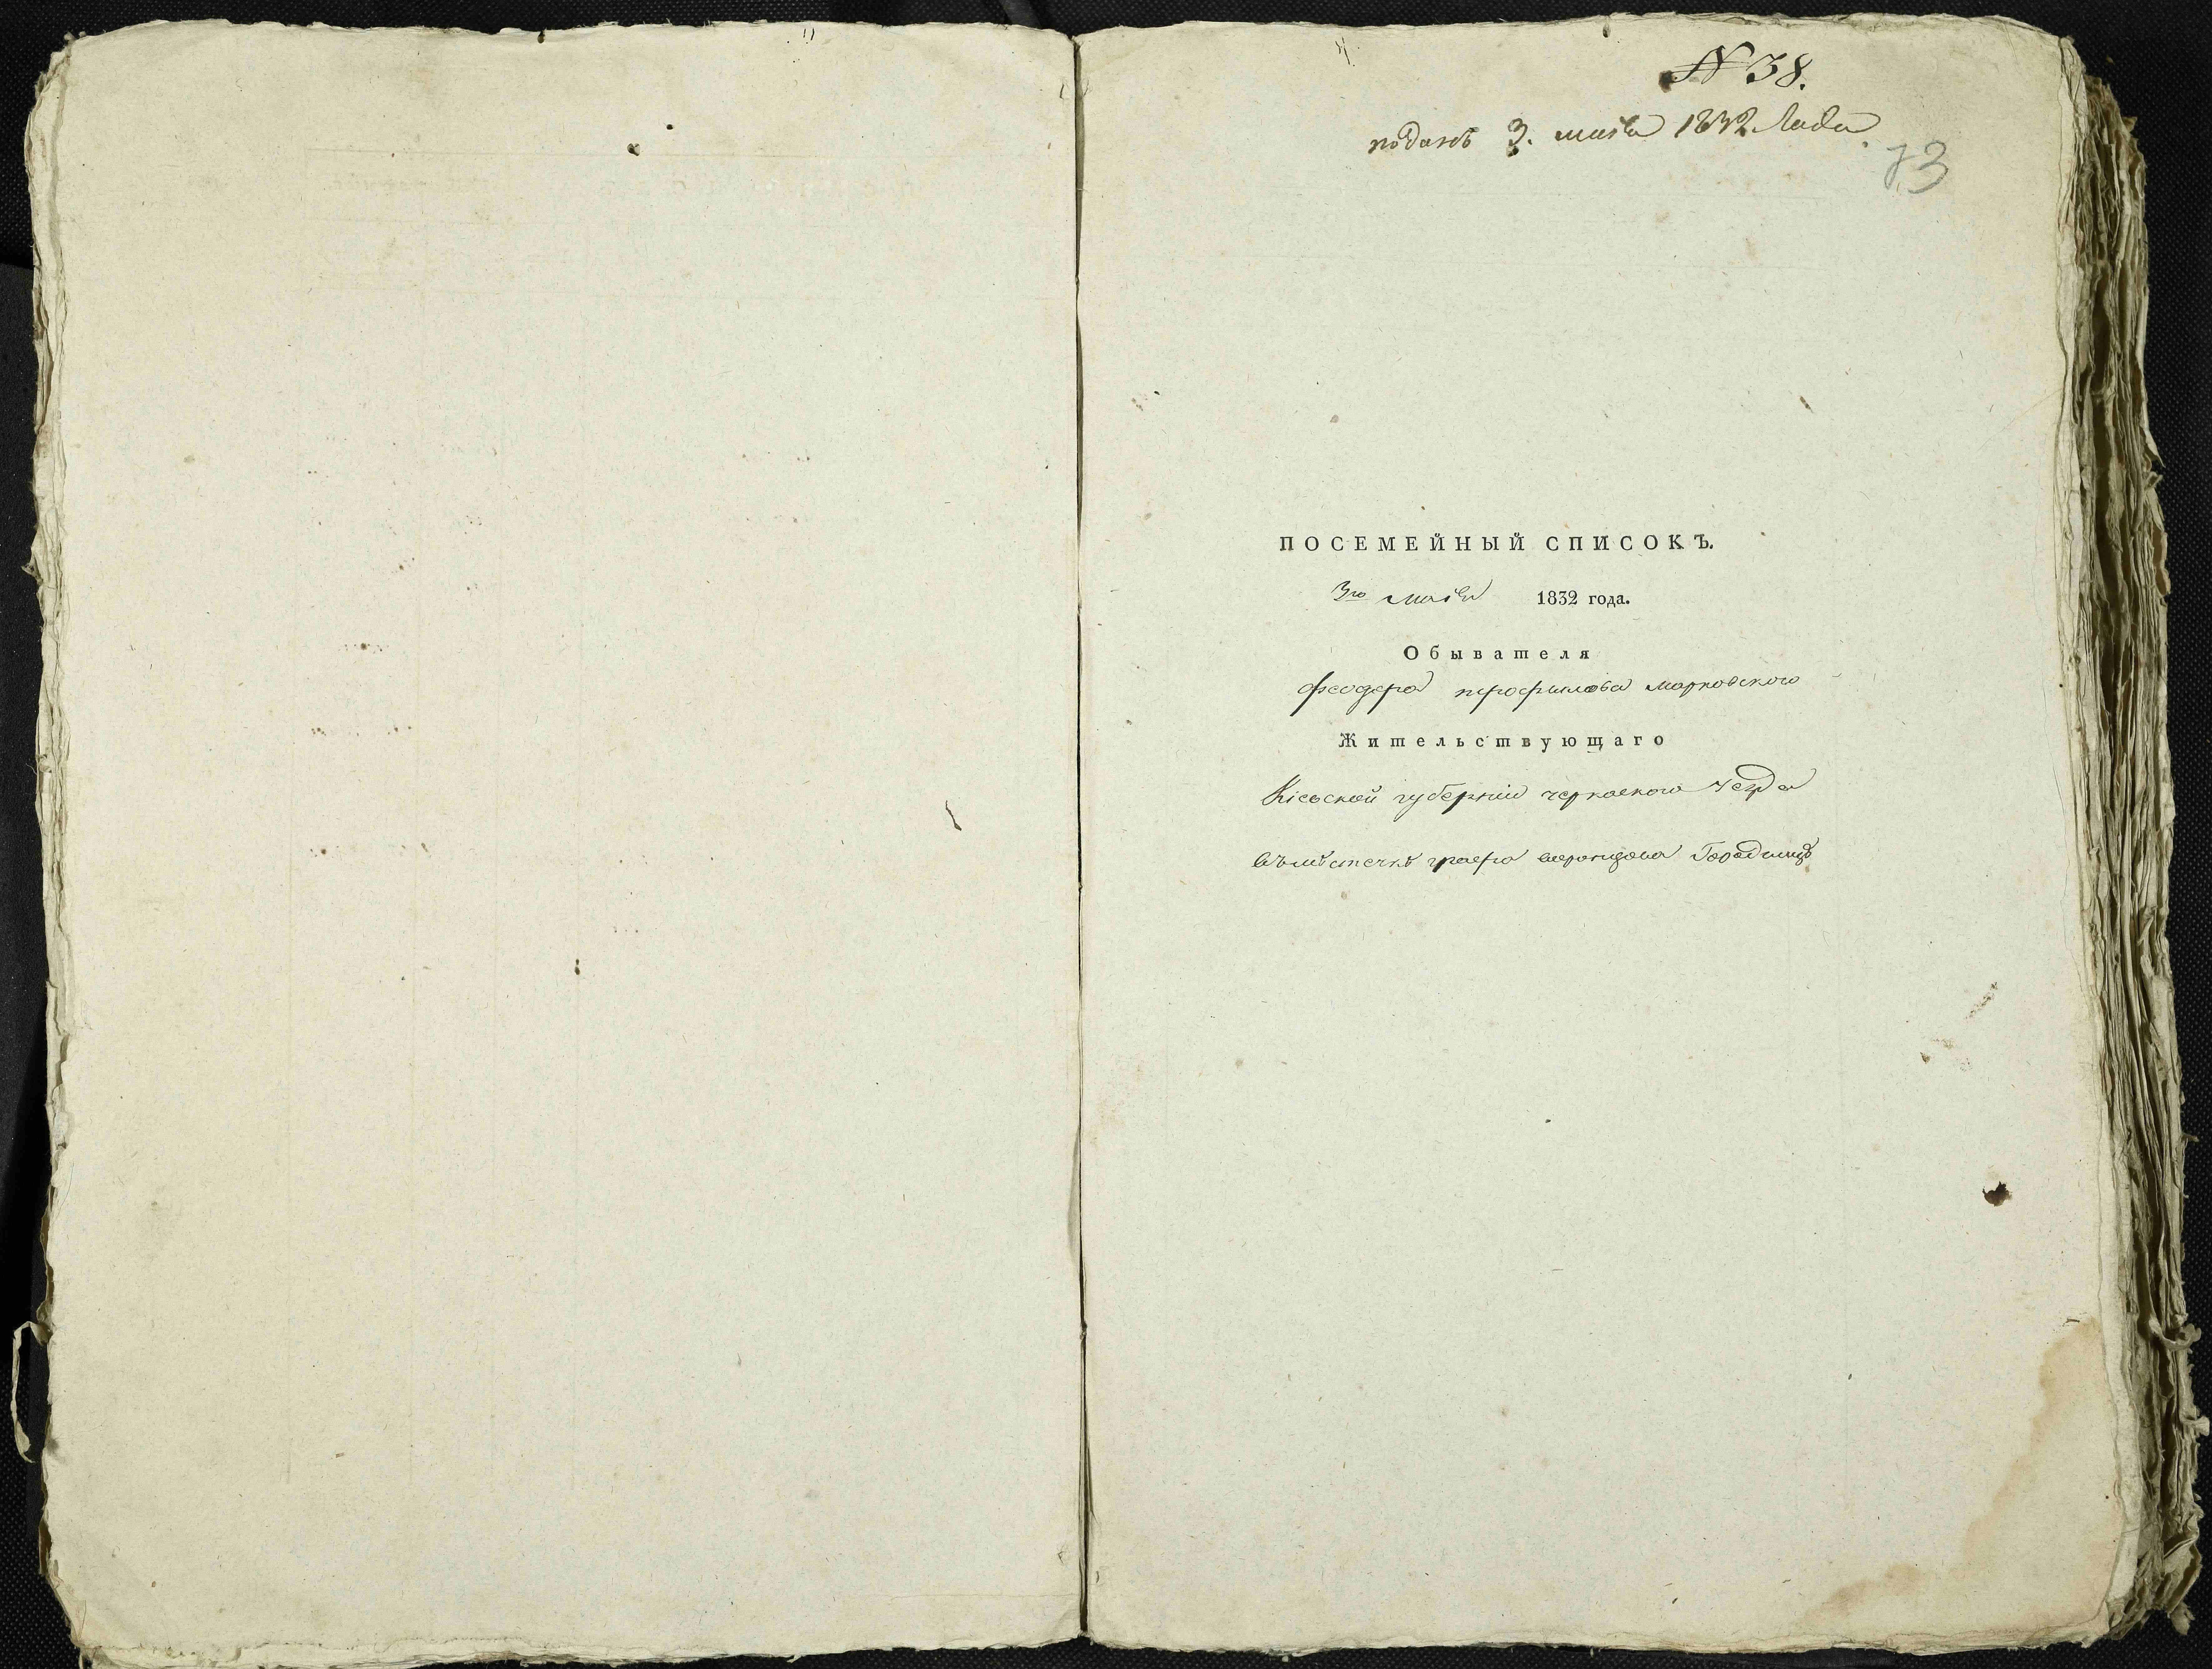 N 38.
поданъ 3. маія 1832 Года
73
ПОСЕМЕЙНЫЙ СПИСОКЪ.
3го маія 1832 года.
Обывателя
феодера трофимова марковского
Жительствующаго
Кіевской губерніи черкаского Уезда
въместечкѣ графа воронцова Городищѣ